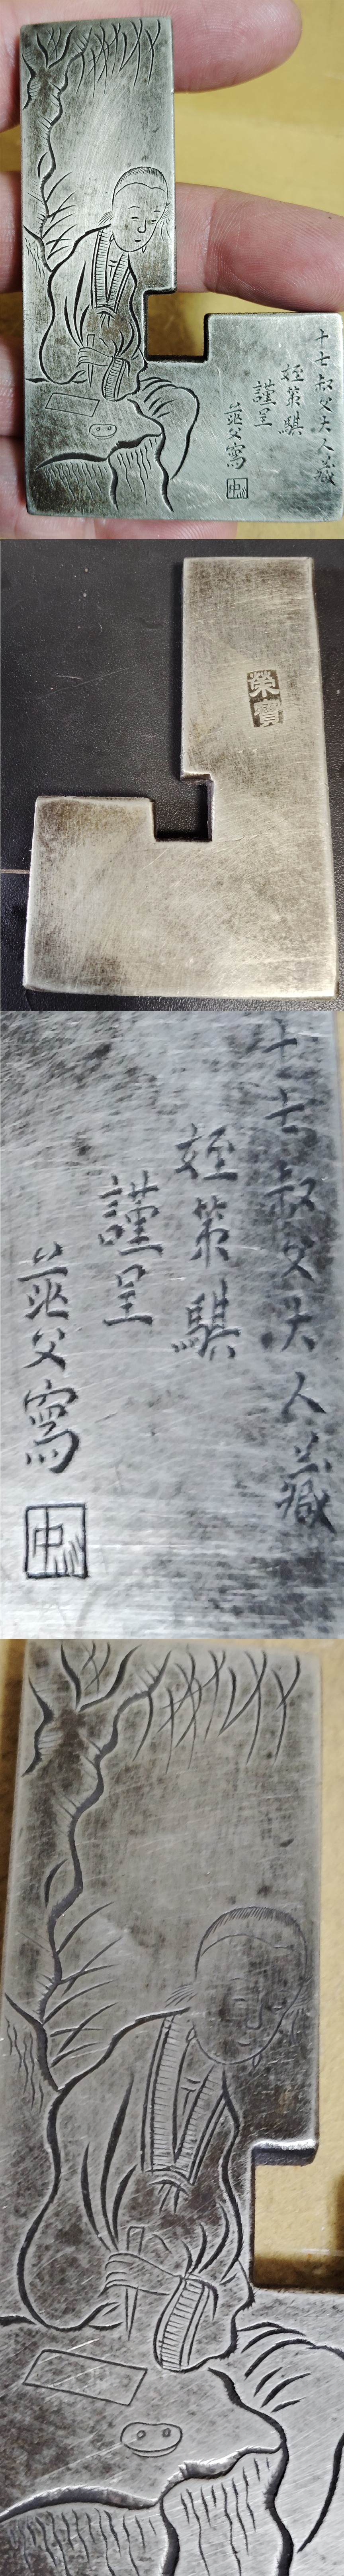 十七叔父大人藏
姪策騏
謹呈
茫父寫
中
榮寶
十七叔父大人藏
姪策騏
謹呈
茫父寫
中